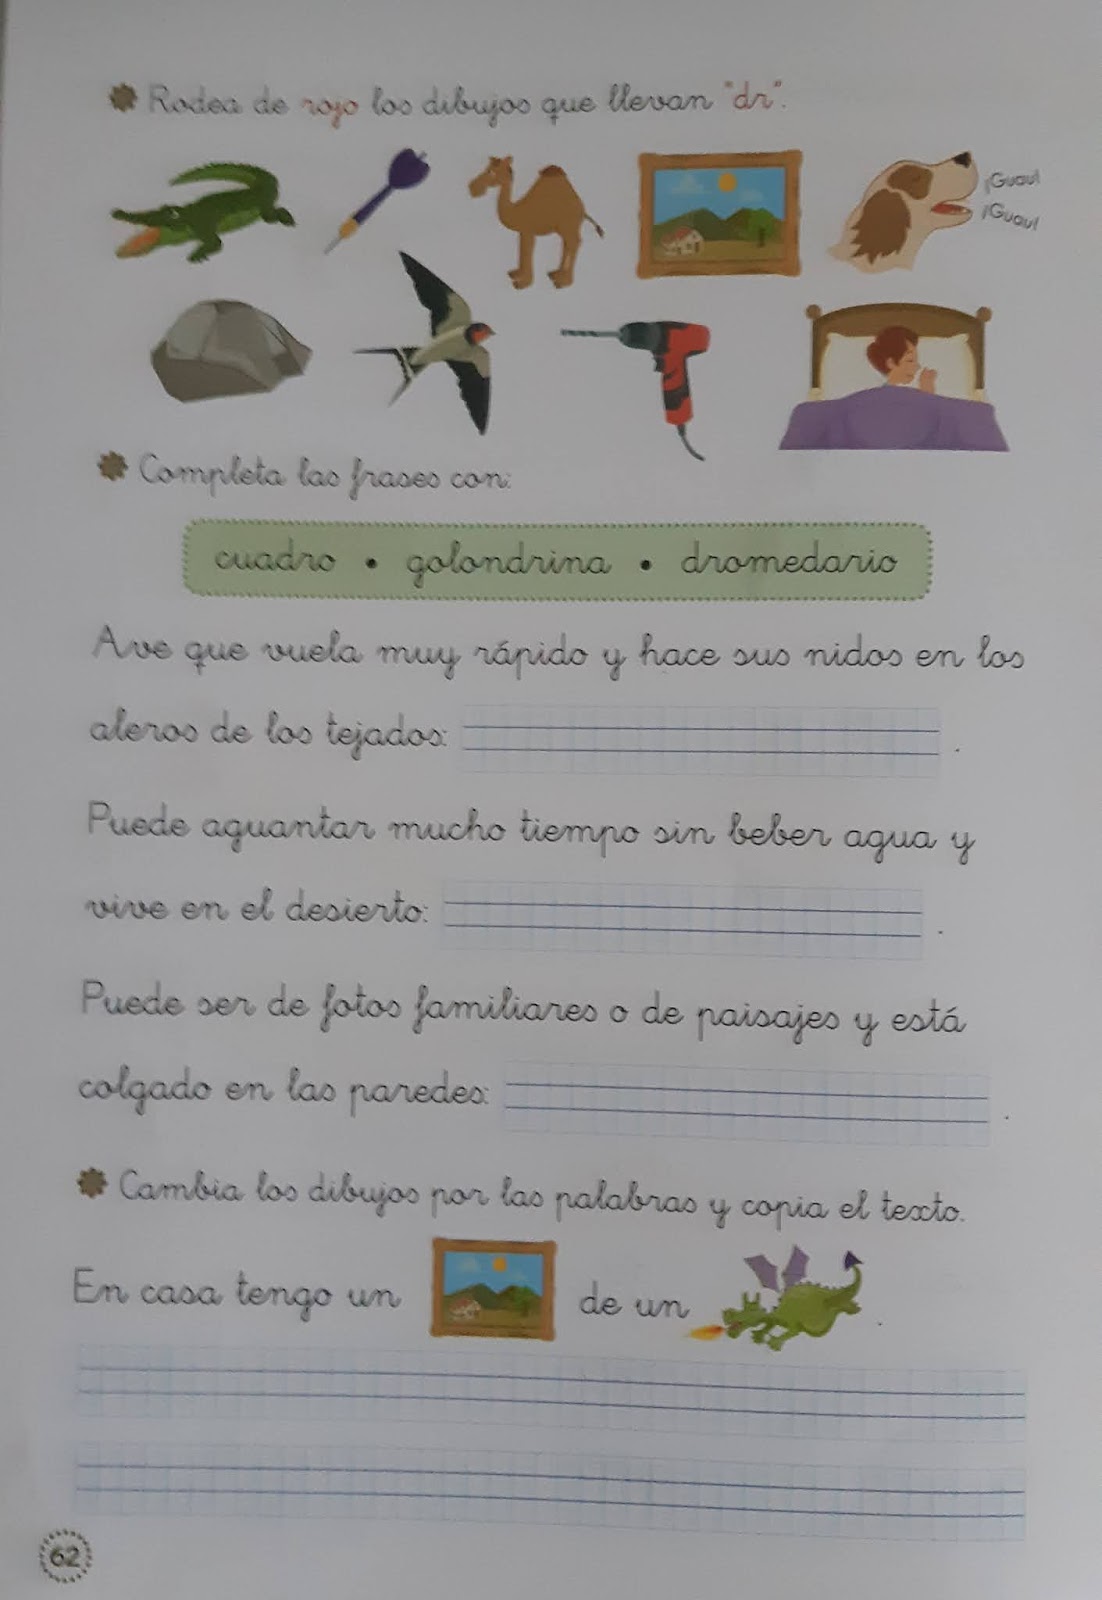 Rodea de rojo los dibujos que llevan "dr".
¡Guau!
¡Guau!
Completa las frases con:
cuadro • golondrina • dromedario
Ave que vuela muy rápido y hace sus nidos en los
aleros de los tejados: .
Puede aguantar mucho tiempo sin beber agua y
vive en el desierto: .
Puede ser de fotos familiares o de paisajes y está
colgado en las paredes: .
Cambia los dibujos por las palabras y copia el texto.
En casa tengo un de un .
62